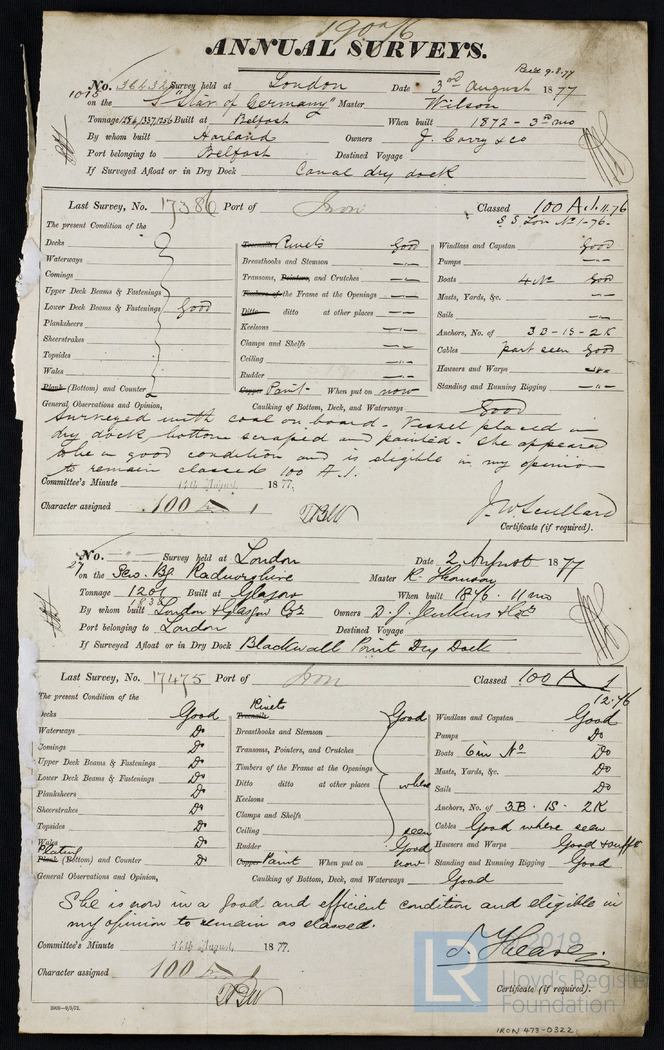 ANNUAL SURVEYS.
Rec'd 9.8.77
No. 36432 Survey held at London Date 3rd August 1877
1015 on the S "Star of Germany" Master Wilson
Tonnage 1256/1337/1256 Built at Belfast When built 1872 - 3rd mo
By whom built Harland Owners J. Corry & Co
Port belonging to Belfast Destined Voyage
If Surveyed Afloat or in Dry Dock Canal dry dock
Last Survey, No. 17386 Port of Iron Classed 100 A.1. 11.76
S.S. Lon No 1-76.
The present Condition of the
Decks
Waterways
Comings
Upper Deck Beams & Fastenings
Lower Deck Beams & Fastenings Good
Planksheers
Sheerstrakes
Topsides
Wales
Plank (Bottom) and Counter
Treenails Rivets Good
Breasthooks and Stemson -"-
Transoms, Pointers, and Crutches -"-
Timbers of the Frame at the Openings -"-
Ditto ditto at other places -"-
Keelsons -"-
Clamps and Shelfs -"-
Ceiling -"-
Rudder -"-
Copper Paint When put on now
Windlass and Capstan Good
Pumps -"-
Boats 4 No Good
Masts, Yards, &c. -"-
Sails -"-
Anchors, No. of 3B - 1S - 2K
Cables part seen Good
Hawsers and Warps -"-
Standing and Running Rigging -"-
General Observations and Opinion, Caulking of Bottom, Deck, and Waterways Good
Surveyed with coal on board - Vessel placed in
dry dock bottom scraped and painted - She appeared
to be in good condition and is eligible in my opinion
to remain classed 100 A.1.
Committee's Minute 14th August 1877.
Character assigned 100 A 1
J. W. Scullard
Certificate (if required).
No. Survey held at London Date 2 August 1877
27 on the Scw. Bg. Radnorshire Master R. Thomson
Tonnage 1201 Built at Glasgow When built 1876 . 11 mo
By whom built London & Glasgow Co Owners D. J. Jenkins & Co
Port belonging to London Destined Voyage
If Surveyed Afloat or in Dry Dock Blackwall Point Dry Dock
Last Survey, No. 17475 Port of Iron Classed 100 A 1
12.76
The present Condition of the
Decks Good
Waterways Do
Comings Do
Upper Deck Beams & Fastenings Do
Lower Deck Beams & Fastenings Do
Planksheers Do
Sheerstrakes Do
Topsides Do
Wales Do
Plank Plating (Bottom) and Counter Do
Rivets
Treenails Good
Breasthooks and Stemson
Transoms, Pointers, and Crutches
Timbers of the Frame at the Openings
Ditto ditto at other places where
Keelsons
Clamps and Shelfs
Ceiling seen
Rudder Good
Copper Paint When put on now
Windlass and Capstan Good
Pumps Do
Boats 6 in No Do
Masts, Yards, &c. Do
Sails Do
Anchors, No. of 3B . 1S . 2K
Cables Good where seen
Hawsers and Warps Good & suff't
Standing and Running Rigging Good
General Observations and Opinion, Caulking of Bottom, Deck, and Waterways Good
She is now in a good and efficient condition and eligible in
my opinion to remain as classed.
Committee's Minute 14th August 1877.
Character assigned 100 A 1
Certificate (if required).
LR 2019
Lloyd's Register
Foundation
IRON 473-0322